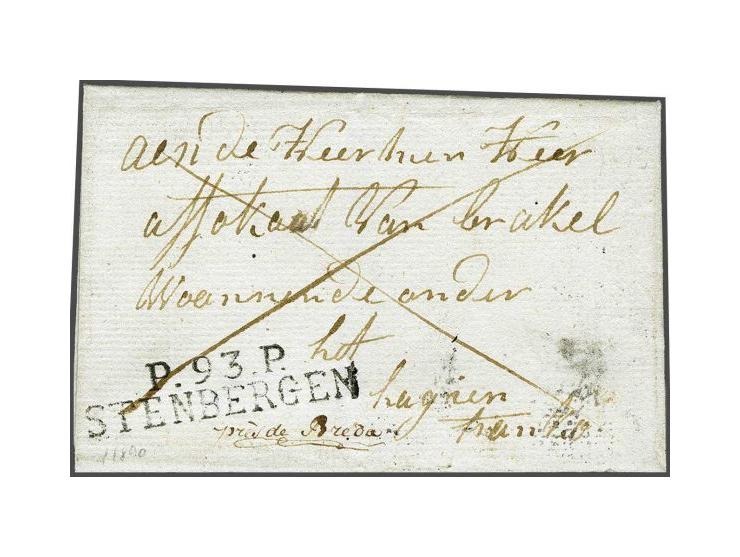 aen de Heer mer Heer
affokaat Van brakel
Woannende onder
het
hagnen
franko
P. 93. P.
STENBERGEN
près de Breda